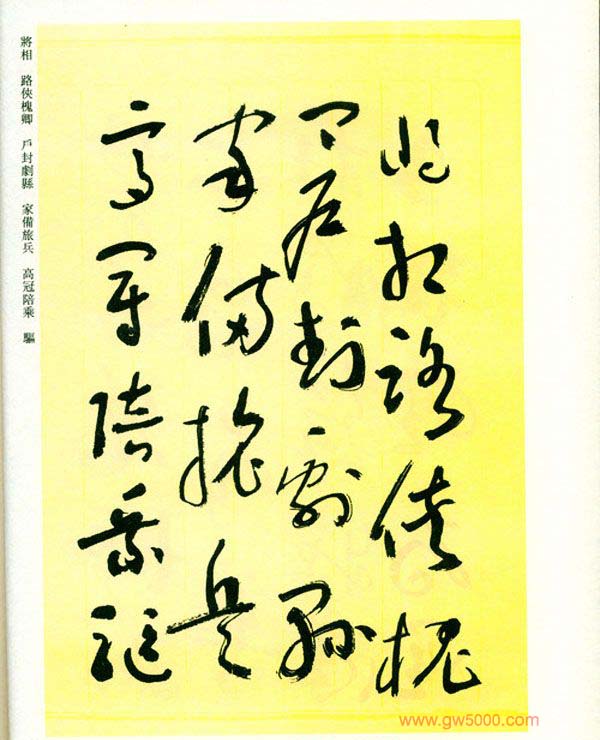 將相路俠槐
卿戶封劇縣
家備旅兵
高冠陪乘驅
將相 路俠槐卿 戶封劇縣 家備旅兵 高冠陪乘 驅
www.gw5000.com